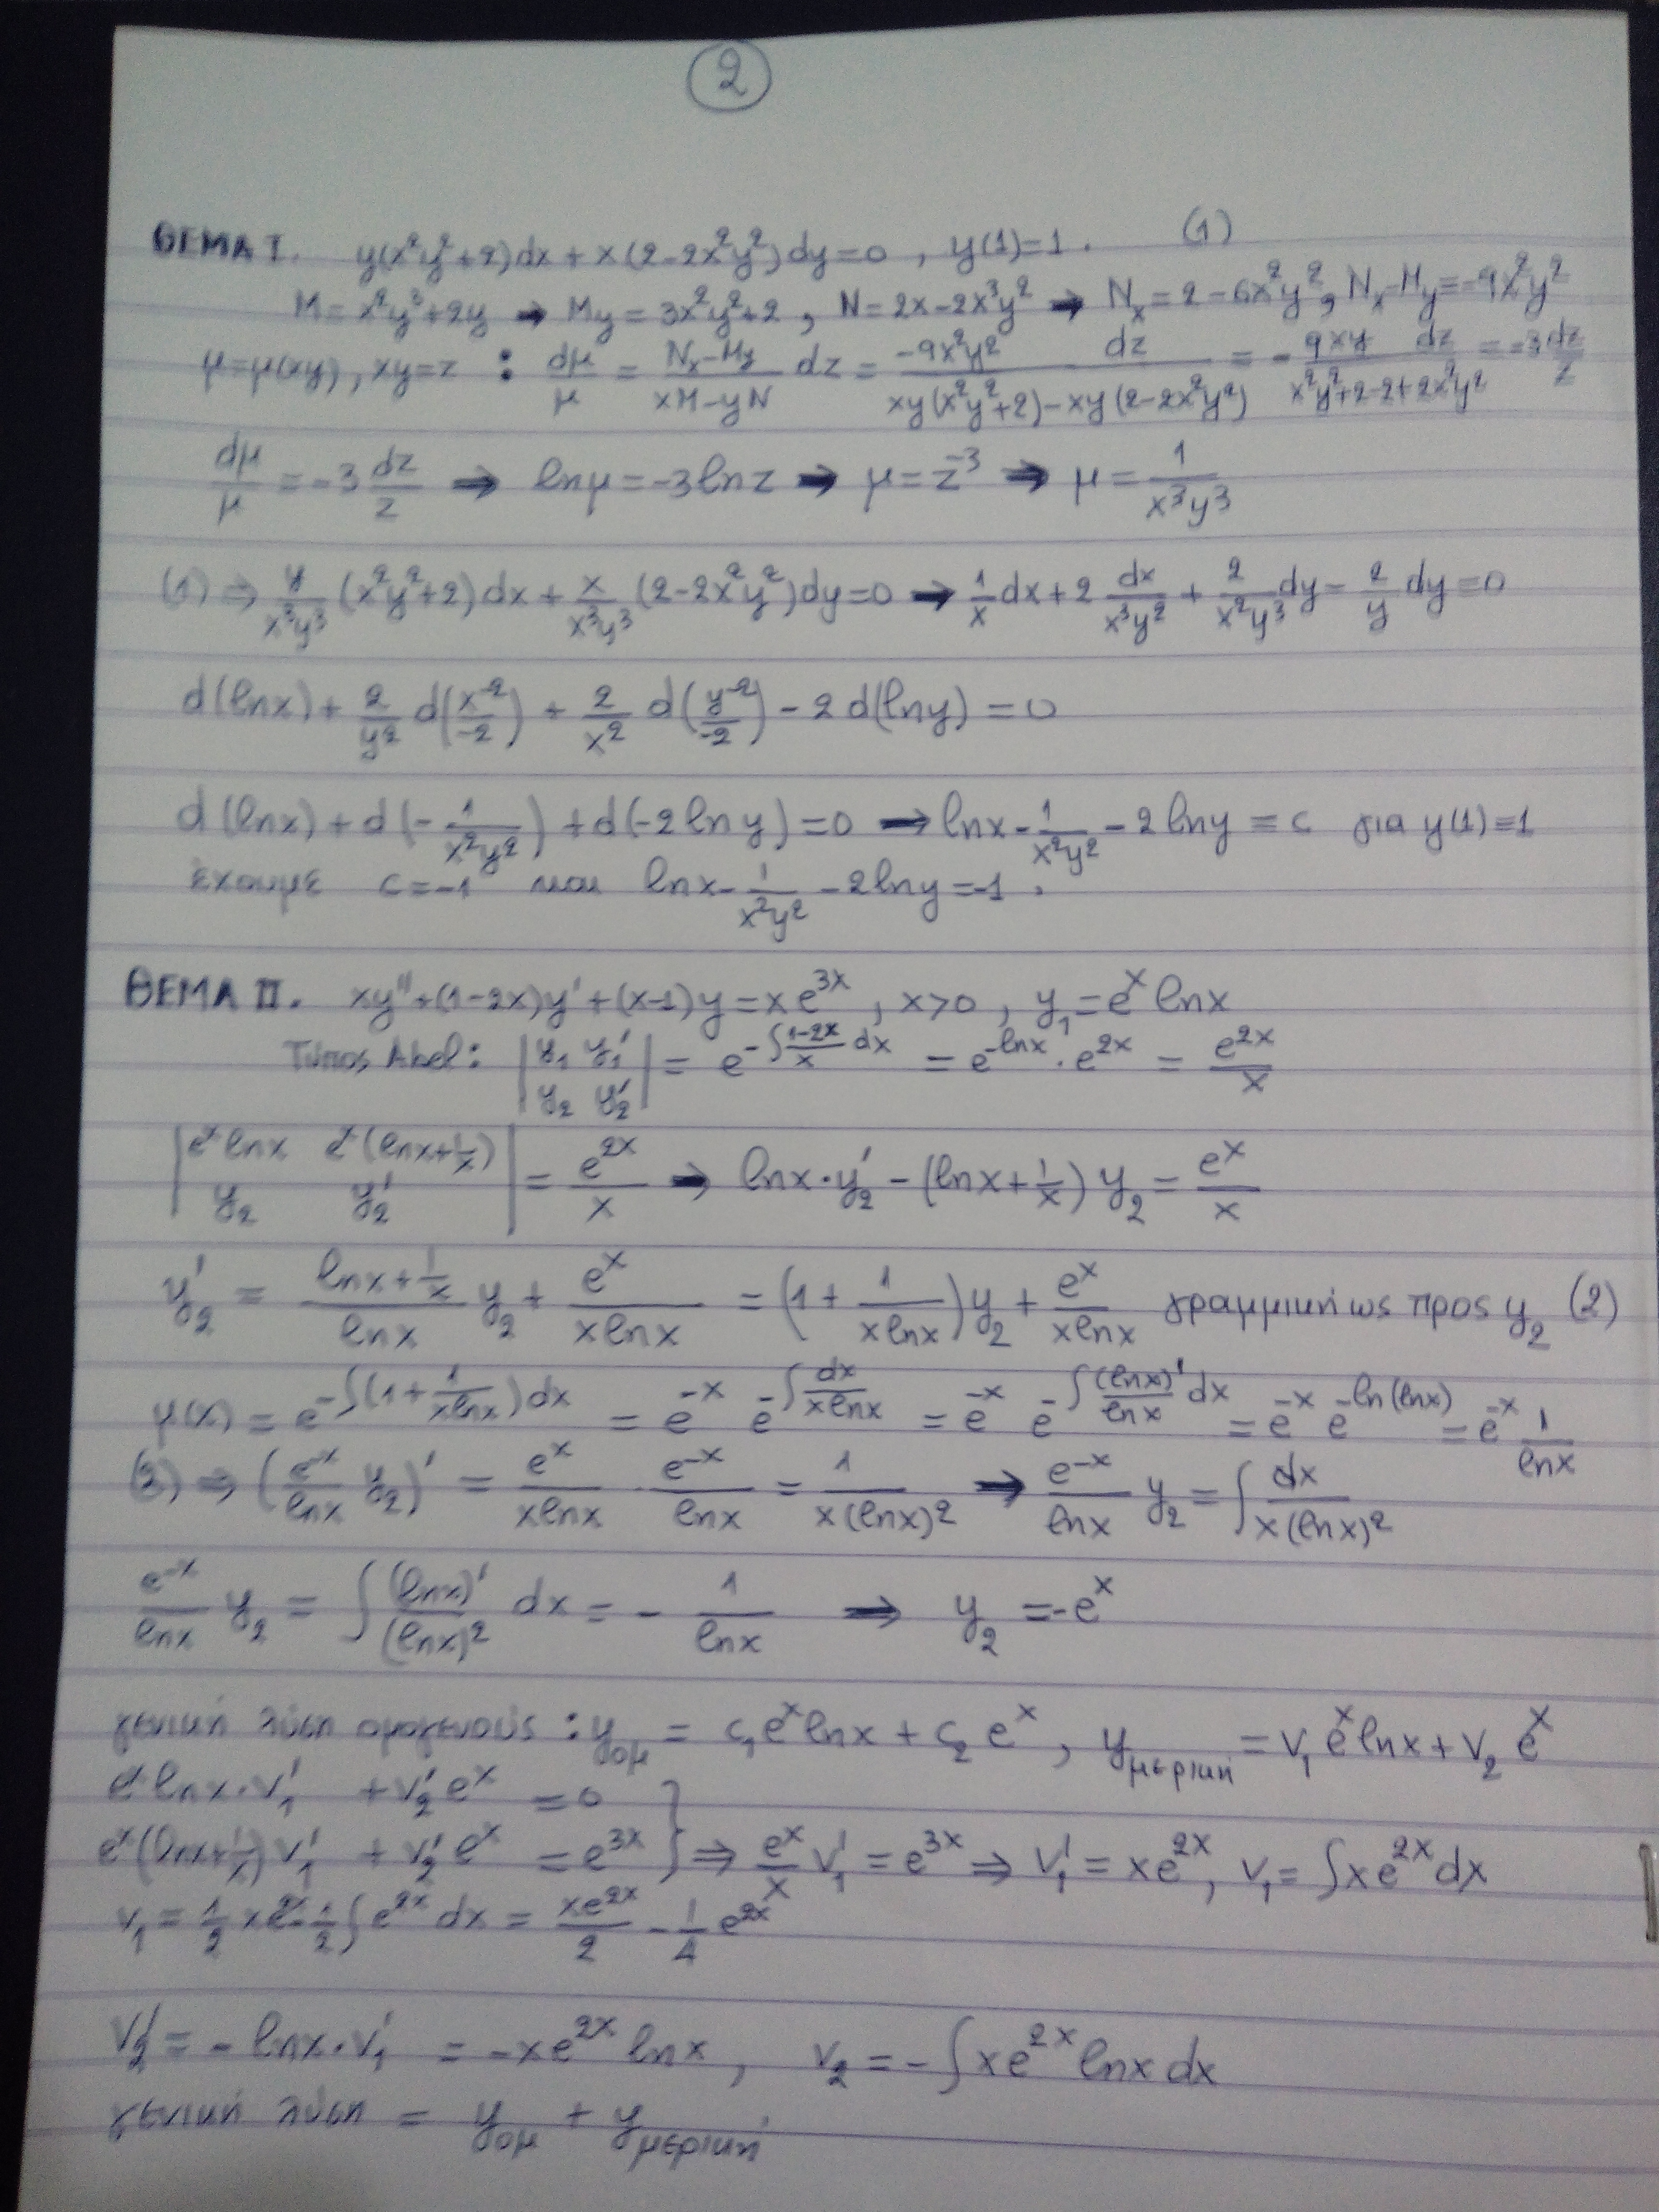 2
ΘΕΜΑ I. y(x²y²+2)dx + x(2-2x²y²)dy=0 , y(1)=1 . (1)
M= x²y³+2y → My = 3x²y²+2 , N=2x-2x³y² → Nx=2-6x²y², Nx-My=-9x²y²
μ=μ(xy), xy=z : dμ/μ = (Nx-My)/(xM-yN) dz = -9x²y² dz/(xy(x²y²+2)-xy(2-2x²y²)) = -9xy dz/(x²y²+2-2+2x²y²) = -3dz/z
dμ/μ = -3 dz/z ⇒ lnμ=-3lnz → μ=z⁻³ ⇒ μ = 1/(x³y³)
(1) ⇒ y/(x³y³) (x²y²+2)dx + x/(x³y³) (2-2x²y²)dy=0 → 1/x dx + 2 dx/(x³y²) + 2/(x²y³) dy - 2/y dy=0
d(lnx) + 2/y² d(x⁻²/-2) + 2/x² d(y⁻²/-2) - 2 d(lny) = 0
d(lnx) + d(-1/(x²y²)) + d(-2lny)=0 → lnx - 1/(x²y²) - 2lny = c για y(1)=1
έχουμε c=-1 και lnx - 1/(x²y²) - 2lny=-1 .
ΘΕΜΑ II. xy''+(1-2x)y'+(x-1)y=xe³ˣ , x>0 , y₁=eˣlnx
Τύπος Abel: |y₁ y₁' ; y₂ y₂'| = e^(-∫(1-2x)/x dx) = e^(-lnx)·e^(2x) = e^(2x)/x
|eˣlnx eˣ(lnx+1/x) ; y₂ y₂'| = e^(2x)/x → lnx·y₂' - (lnx+1/x) y₂ = eˣ/x
y₂' = (lnx+1/x)/lnx y₂ + eˣ/(xlnx) = (1+ 1/(xlnx))y₂ + eˣ/(xlnx) γραμμική ως προς y₂ (2)
μ(x) = e^(-∫(1+1/(xlnx))dx) = e^(-x) e^(-∫dx/(xlnx)) = e^(-x) e^(-∫(lnx)'/lnx dx) = e^(-x) e^(-ln(lnx)) = e^(-x) 1/lnx
(2) ⇒ (e^(-x)/lnx y₂)' = eˣ/(xlnx) · e^(-x)/lnx = 1/(x(lnx)²) → e^(-x)/lnx y₂ = ∫dx/(x(lnx)²)
e^(-x)/lnx y₂ = ∫(lnx)'/(lnx)² dx = - 1/lnx ⇒ y₂ =-eˣ
γενική λύση ομογενούς : yομ = c₁eˣlnx + c₂eˣ , yμερική = v₁eˣlnx + v₂eˣ
eˣlnx·v₁' + v₂'eˣ = 0
eˣ(lnx+1/x)v₁' + v₂'eˣ = e³ˣ } ⇒ eˣ/x v₁' = e³ˣ ⇒ v₁' = xe²ˣ, v₁=∫xe²ˣdx
v₁ = 1/2 xe²ˣ - 1/2 ∫e²ˣdx = xe²ˣ/2 - 1/4 e²ˣ
v₂' = - lnx·v₁' = -xe²ˣlnx , v₂ = -∫xe²ˣlnxdx
γενική λύση = yομ + yμερική